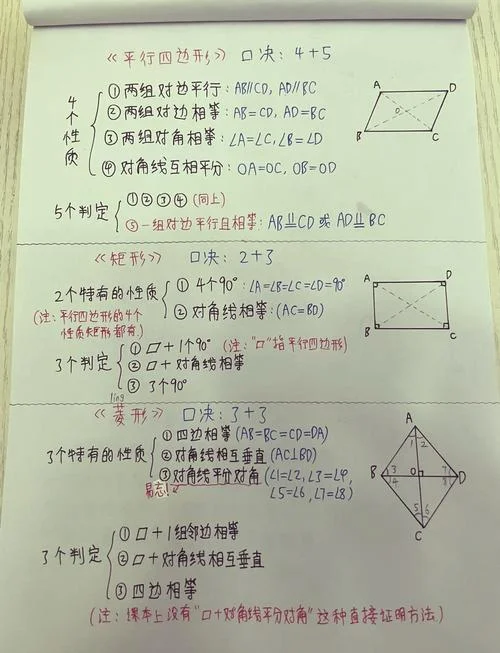 《平行四边形》 口决: 4+5
4个性质
① 两组对边平行: AB∥CD, AD∥BC
② 两组对边相等: AB=CD, AD=BC
③ 两组对角相等: ∠A=∠C, ∠B=∠D
④ 对角线互相平分: OA=OC, OB=OD
A D
O
B C
5个判定
①②③④ (同上)
⑤ 一组对边平行且相等: AB⫫CD 或 AD⫫BC
《矩形》 口决: 2+3
2个特有的性质
(注: 平行四边形的4个
性质矩形都有.)
① 4个90°: ∠A=∠B=∠C=∠D=90°
② 对角线相等: (AC=BD)
A D
B C
3个判定
① □+1个90° (注: "□"指平行四边形)
② □+对角线相等
③ 3个90°
líng
《菱形》 口决: 3+3
3个特有的性质
① 四边相等 (AB=BC=CD=DA)
② 对角线相互垂直 (AC⊥BD)
③ 对角线平分对角 (∠1=∠2, ∠3=∠4,
∠5=∠6, ∠7=∠8)
易忘!
A
1 2
B 3 O 7 D
4 8
5 6
C
3个判定
① □+1组邻边相等
② □+对角线相互垂直
③ 四边相等
(注: 课本上没有"□+对角线平分对角"这种直接证明方法.)